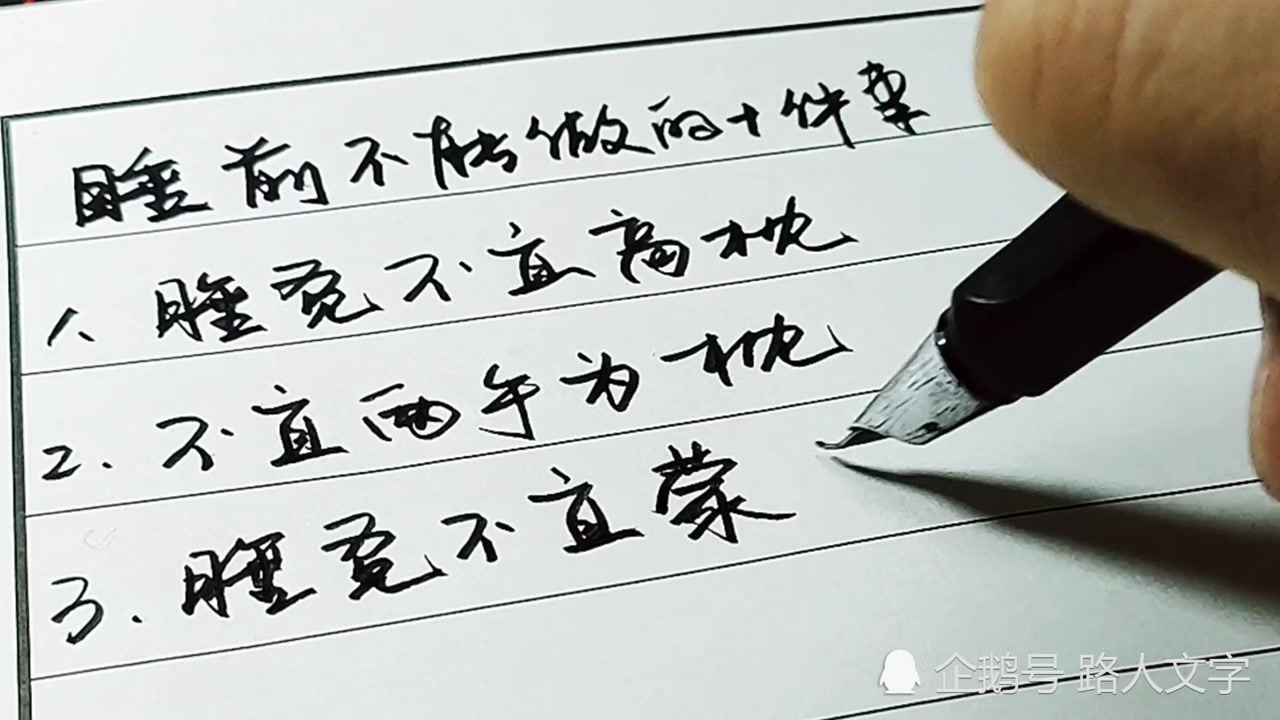 睡前不能做的十件事
1、睡觉不宜高枕
2.不宜两手为枕
3.睡觉不宜蒙
企鹅号 路人文字